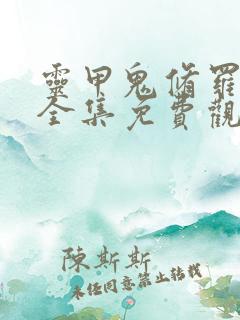 靈甲鬼脩羅
全集免費觀
陳斯斯
未經同意禁止轉載